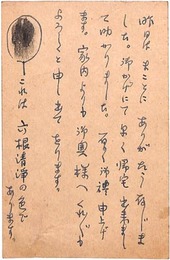 昨日はまことにありがたう存じま
した。御かげにて早く帰宅出来まし
て助かりました。厚く御禮申上げ
ます。家内よりも御奥様へくれぐれも
よろしくと申し出てをります。
これは六根清浄の色で
あります